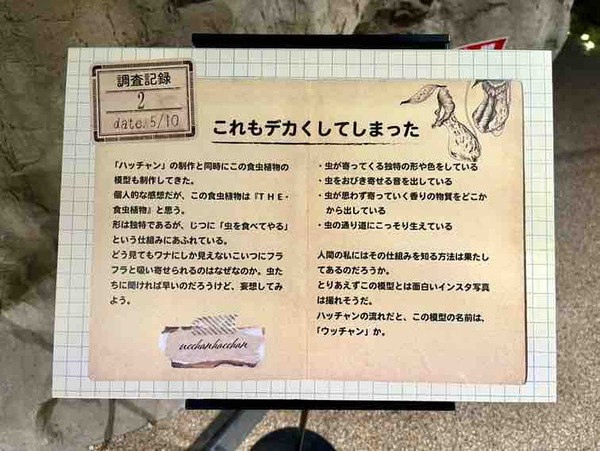 調査記録
2
date. 5/10
これもデカくしてしまった
「ハッチャン」の制作と同時にこの食虫植物の
模型も制作してきた。
個人的な感想だが、この食虫植物は『THE・
食虫植物』と思う。
形は独特であるが、じつに「虫を食べてやる」
という仕組みにあふれている。
どう見てもワナにしか見えないこいつにフラ
フラと吸い寄せられるのはなぜなのか。虫た
ちに聞ければ早いのだろうけど、妄想してみ
よう。
ucchanhacchan
・虫が寄ってくる独特の形や色をしている
・虫をおびき寄せる音を出している
・虫が思わず寄っていく香りの物質をどこか
から出している
・虫の通り道にこっそり生えている
人間の私にはその仕組みを知る方法は果たし
てあるのだろうか。
とりあえずこの模型とは面白いインスタ写真
は撮れそうだ。
ハッチャンの流れだと、この模型の名前は、
「ウッチャン」か。